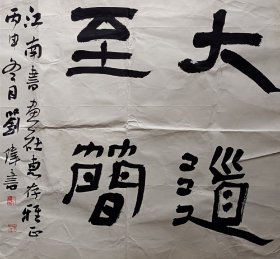 大道
至簡
江南書画社惠存雅正
丙申冬月劉偉書